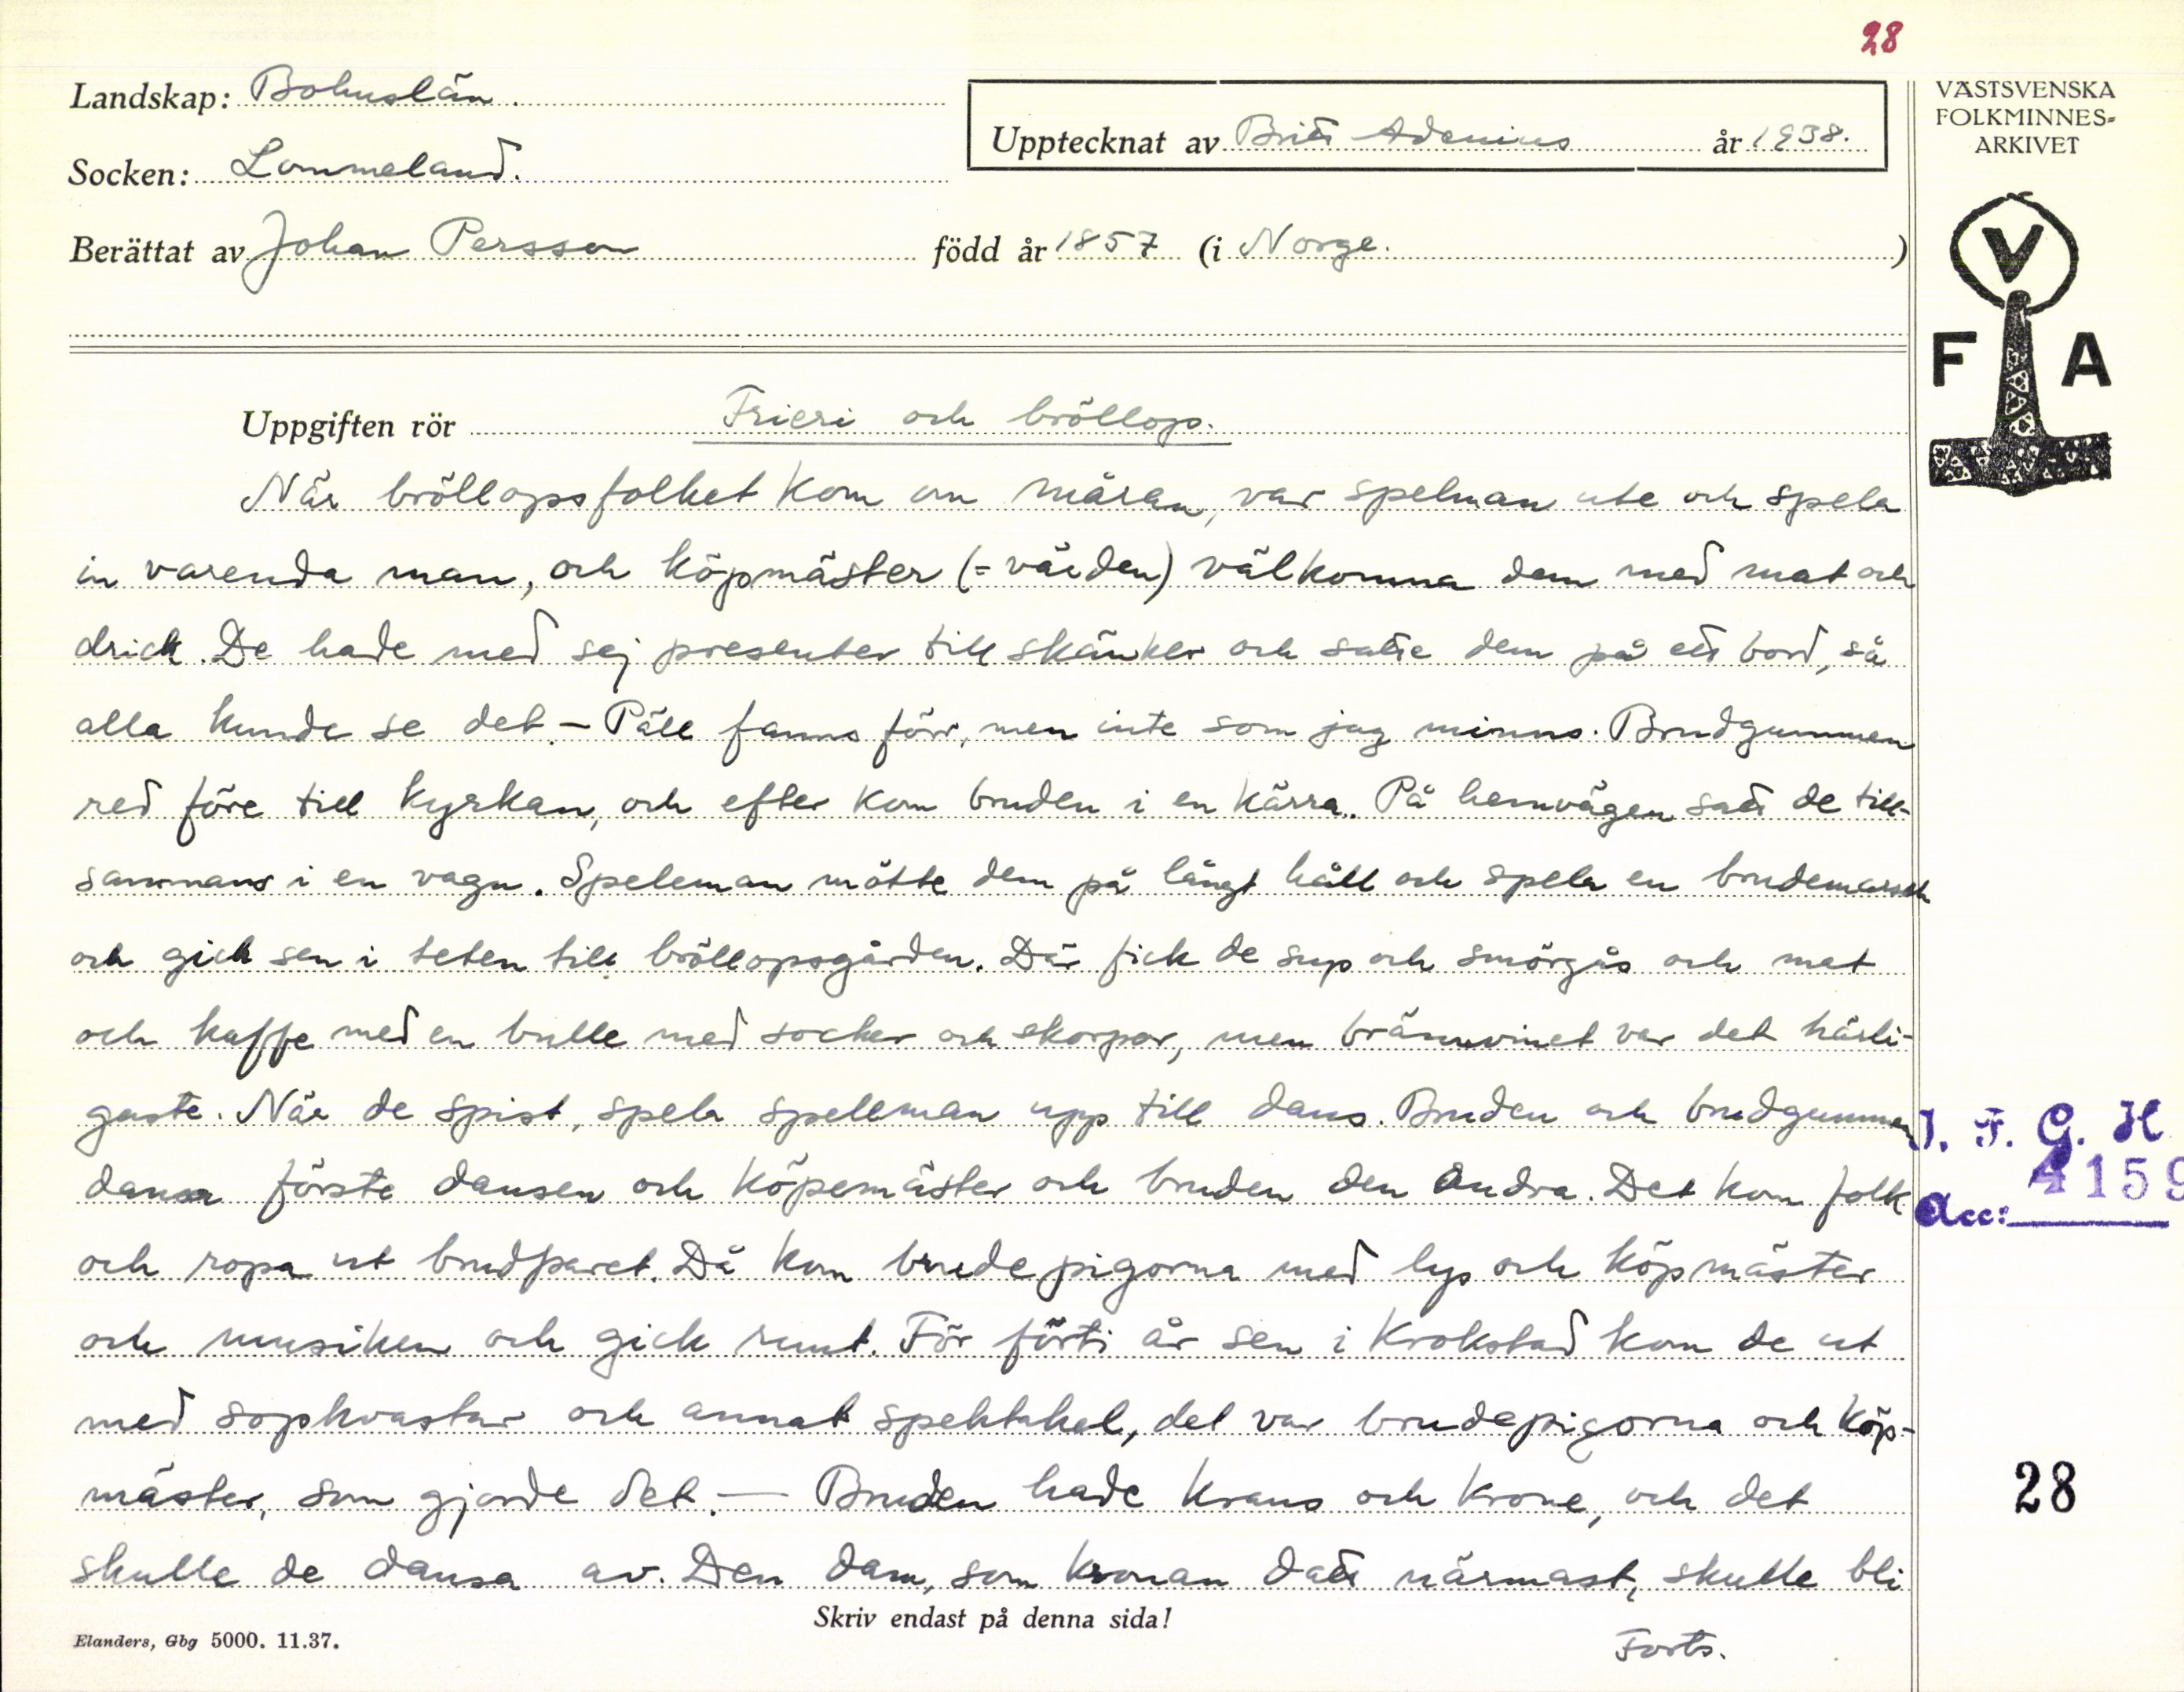 28
Landskap: Bohuslän.
Upptecknat av Britt Adenius år 1938.
Socken: Lommeland.
Berättat av Johan Persson född år 1857 (i Norge.)
VÄSTSVENSKA
FOLKMINNES-
ARKIVET
V
F A
Uppgiften rör Frieri och bröllop.
När bröllopsfolket kom om måran, var spelman ute och spela
in varenda man, och köpmäster (= värden) välkomna dem med mat och
drick. De hade med sej presenter till skänker och satte dem på ett bord, så
alla kunde se det. – Päll fanns förr, men inte som jag minns. Brudgummen
red före till kyrkan, och efter kom bruden i en kärra. På hemvägen satt de till-
sammans i en vagn. Speleman mötte dem på långt håll och spela en brudemarsch
och gick sen i teten till bröllopsgården. Där fick de sup och smörgås och mat
och kaffe med en bulle med socker och skorpor, men brännvinet var det härli-
gaste. När de spist, spela spelleman upp till dans. Bruden och brudgummen
dansa förste dansen och köpemäster och bruden den andra. Det kom folk
och ropa ut brudparet. Då kom brudepigorna med lys och köpmäster
och musiken och gick runt. För förti år sen i Krokstad kom de ut
med sopkvastar och annat spektakel, det var brudepigorna och köp-
mäster, som gjorde det. — Bruden hade krans och krone, och det
skulle de dansa av. Den dam, som kronan datt närmast, skulle bli
Skriv endast på denna sida!
Elanders, Gbg 5000. 11.37.
Forts.
I. F. G. H
4159
Acc:
28